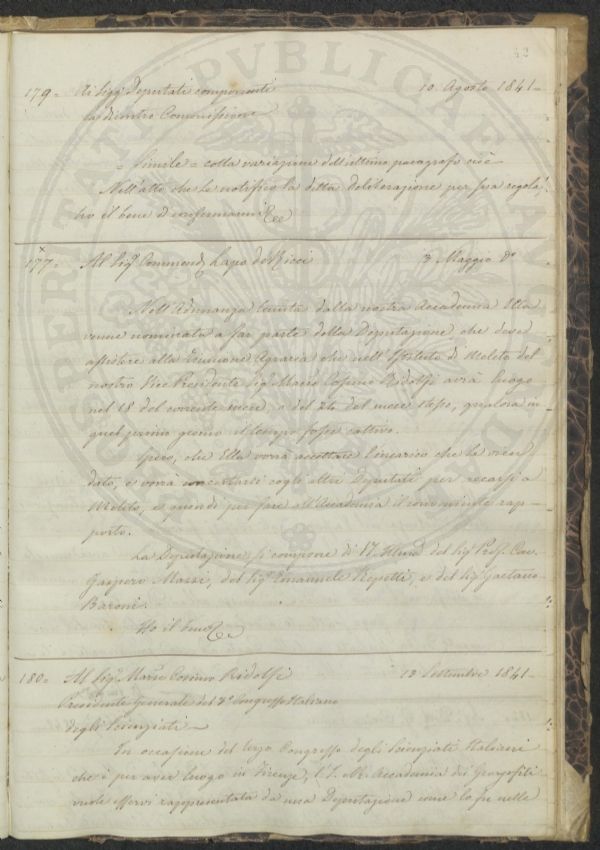 42
179= Ai Sigg.i Deputati componenti 10. Agosto 1841-
la dicontro Commissione
= Simile = colla variazione dell'ultimo paragrafo cioè
Nell'atto che le notifico la detta deliberazione per sua regola,
ho il bene di confermarmi &c
177= Al Sig.r Commend. Lapo de Ricci 3 Maggio do
Nell'Adunanza tenuta dalla nostra Accademia Ella
venne nominata a far parte della Deputazione che deve
assistere alla riunione Agraria che nell'Istituto di Meleto del
nostro Vice Presidente Sig.r March. Cosimo Ridolfi avrà luogo
nel 18 del corrente mese, o del 24 del mese stesso, qualora in
quel primo giorno il tempo fosse cattivo.
Spero, che Ella vorrà accettare l'incarico che le vien
dato, e vorrà concertarsi cogli altri Deputati per recarsi a
Meleto, e quindi per fare all'Accademia il conveniente rap-
porto.
La Deputazione si compone di V. S. Illma. del Sig.r Prof. Cav.
Gaspero Mazzi, del Sig.r Emanuele Repetti, e del Sig.r Gaetano
Baroni.
Ho il bene &c
180= Al Sig.r March. Cosimo Ridolfi 12 Settembre 1841-
Presidente Generale del 3.o Congresso Italiano
degli Scienziati-
In occasione del terzo Congresso degli Scienziati Italiani
che è per aver luogo in Firenze, l'I. e R. Accademia dei Georgofili
vuole esservi rappresentata da una Deputazione come lo fu nelle